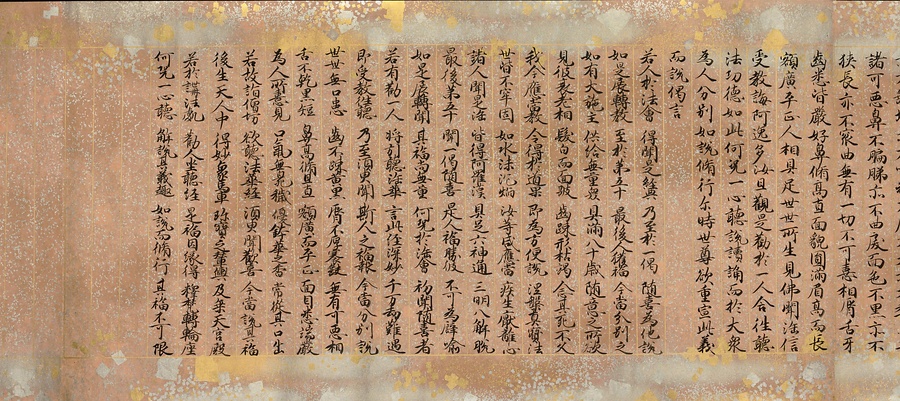 諸可惡鼻不亦不曲戾面色不黑亦不
狹長亦不窊曲無有一切不可喜相脣舌牙
齒悉皆嚴好鼻脩高直面貌圓滿眉高而長
額廣平正人相具足世世所生見佛聞法信
受教誨阿逸多汝且觀是勸於一人令往聽
法功德如此何況一心聽說讀誦而於大衆
為人分別如說脩行尒時世尊欲重宣此義
而說偈言
若人於法會 得聞是經典 乃至於一偈 隨喜為他說
如是展轉教 至於第五十 最後人獲福 今當分別之
如有大施主 供給無量衆 具滿八十歲 隨意之所欲
見彼衰老相 髮白而面皺 齒疎形枯竭 念其死不久
我今應當教 令得於道果 即為方便說 涅槃真實法
世皆不牢固 如水沫泡焰 汝等咸應當 疾生厭離心
諸人聞是法 皆得阿羅漢 具足六神通 三明八解脫
最後第五十 聞一偈隨喜 是人福勝彼 不可為譬喻
如是展轉聞 其福尚無量 何況於法會 初聞隨喜者
若有勸一人 將引聽法華 言此經深妙 千万劫難遇
即受教往聽 乃至須臾聞 斯人之福報 今當分別說
世世無口患 齒不疎黃黑 脣不厚褰缺 無有可惡相
舌不乾黑短 鼻高脩且直 額廣而平正 面目悉端嚴
為人所喜見 口氣無臭穢 優鉢華之香 常從其口出
若故詣僧坊 欲聽法華經 須臾聞歡喜 今當說其福
後生天人中 得妙象馬車 珍寶之輦輿 及乘天宮殿
若於講法處 勸人坐聽經 是福因緣得 釋梵轉輪座
何況一心聽 解說其義趣 如說而脩行 其福不可限